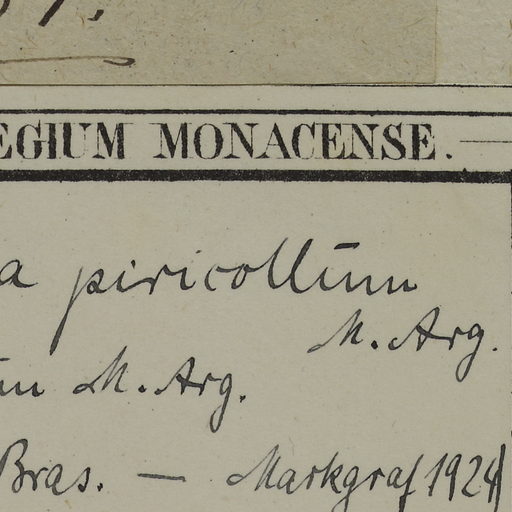 EGIUM MONACENSE.
a piricollum
M. Arg.
um M. Arg.
Bras. — Markgraf 1924